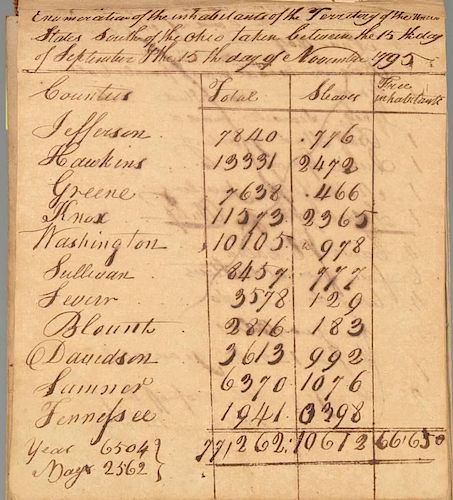 Enumeration of the inhabitants of the Territory of the United
States South of the Ohio taken between the 15th day
of September & the 15th day of November 1795
Counties Total Slaves Free inhabitants
Jefferson 7840 776
Hawkins 13331 2472
Greene 7638 466
Knox 11573 2365
Washington 10105 978
Sullivan 8457 777
Sevier 3578 129
Blount 2816 183
Davidson 3613 992
Sumner 6370 1076
Tennessee 1941 398
Yeas 6504 77,262 10612 66,650
Nays 2562